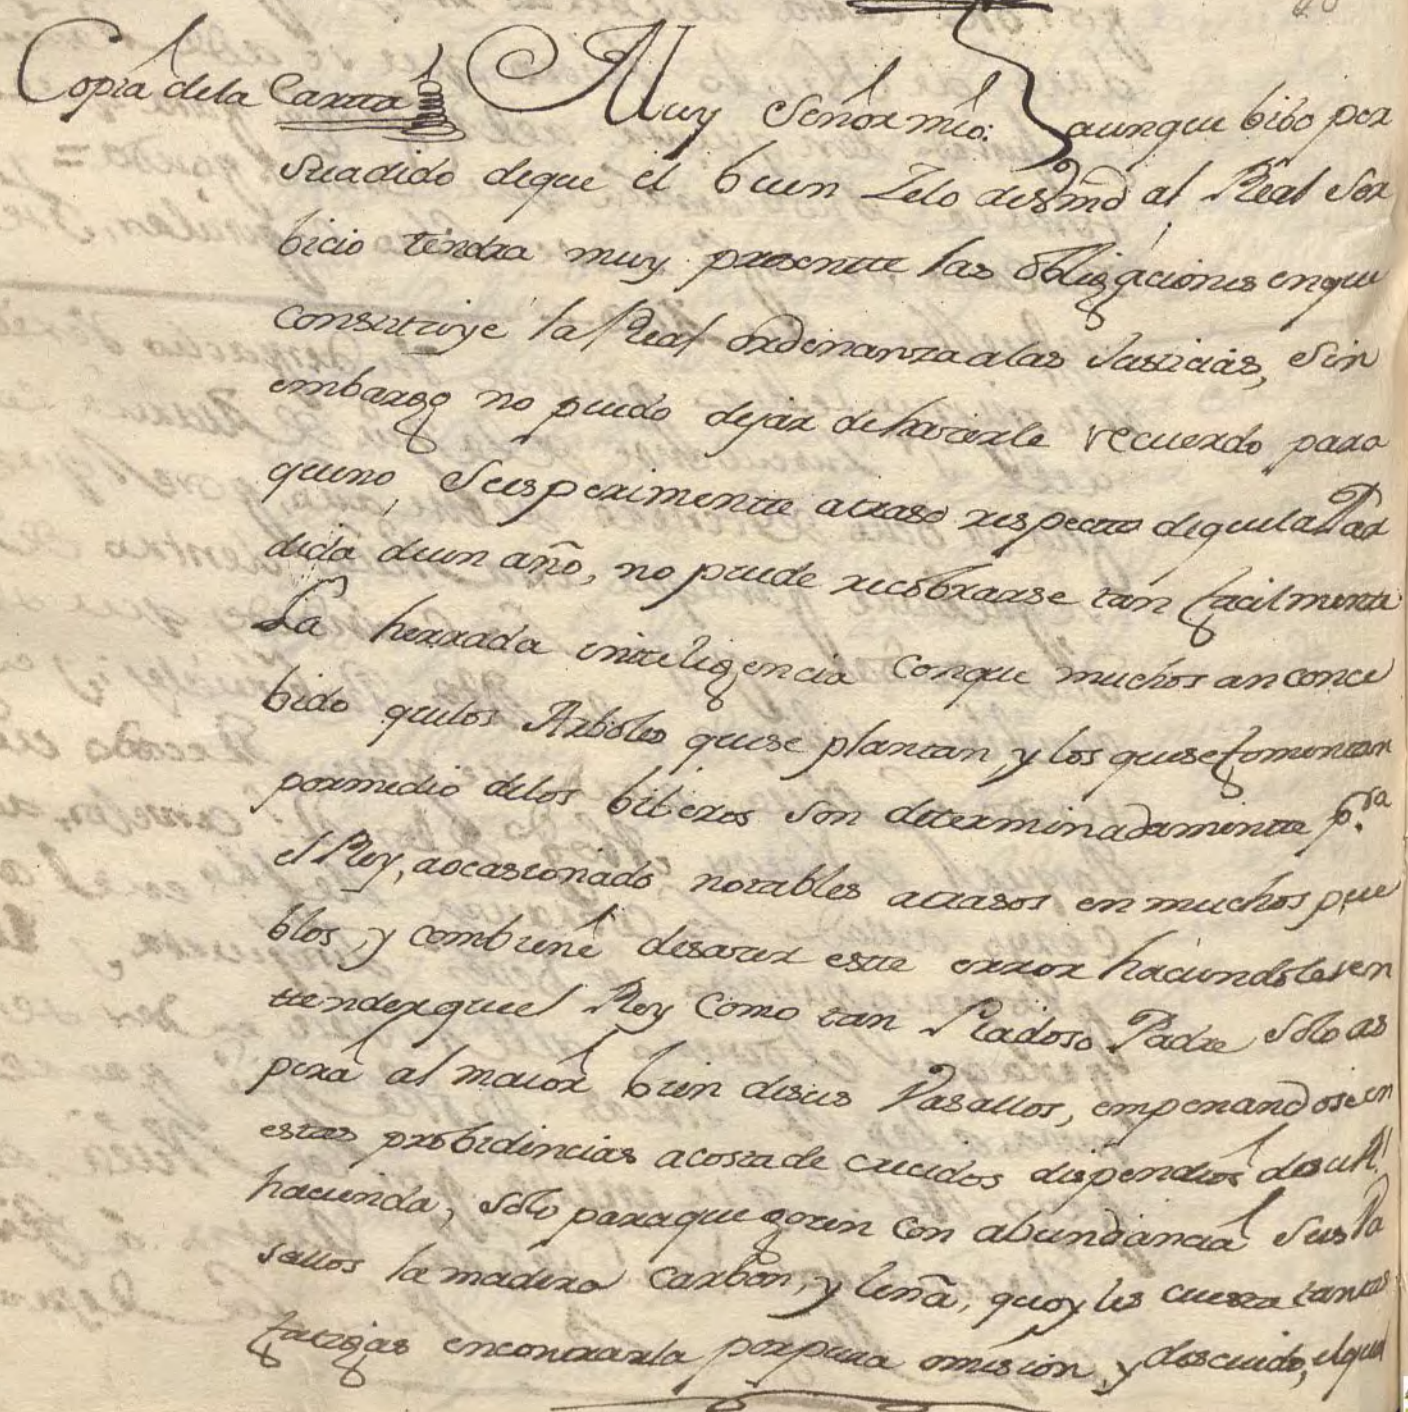 Copia dela Carta Muy Señor mio: aunque bibo per
suadido deque el buen Zelo des md al Real Ser
bicio tendra muy presentte las obligaciones enque
constituye la Real ordenanza alas Justicias, Sin
embargo no puedo dejar de hacerle recuerdo para
queno, Seesperimentte atraso respecto dequela Per
dida deun año, no puede recobrarse tan facilmente
La herrada intteligencia conque muchos an conce
bido quelos Arboles quese plantan, y los quese fomentan
pormedio delos biberos son determinadamentte p.ra
el Rey, aocasionado notables atrasos en muchos pue
blos, y combiene desatar este error haciendoles en
ttender queel Rey Como tan Piadoso Padre solo as
pira al maior bien desus Vasallos, empenandose en
estas probidencias acosta de crecidos dispendios desu Rl
hacienda, solo paraque gocen con abundancia Sus Va
sallos la madera carbon, y leña, queoy les cuesta tantas
fatigas encontrarla porpura omision, y descuido, elqual